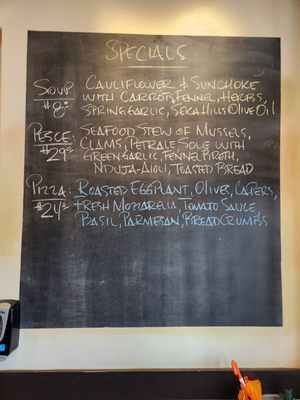 SPECIALS
SOUP: CAULIFLOWER & SUNCHOKE
$8- WITH CARROTS, FENNEL, HERBS,
SPRING GARLIC, SEKA HILLS OLIVE OIL
PESCE: SEAFOOD STEW OF MUSSELS,
$29- CLAMS, PETRALE SOLE WITH
GREEN GARLIC, FENNEL BROTH,
NDUJA-AIOLI, TOASTED BREAD
PIZZA: ROASTED EGGPLANT, OLIVES, CAPERS,
$24- FRESH MOZZARELLA, TOMATO SAUCE,
BASIL, PARMESAN, BREADCRUMBS